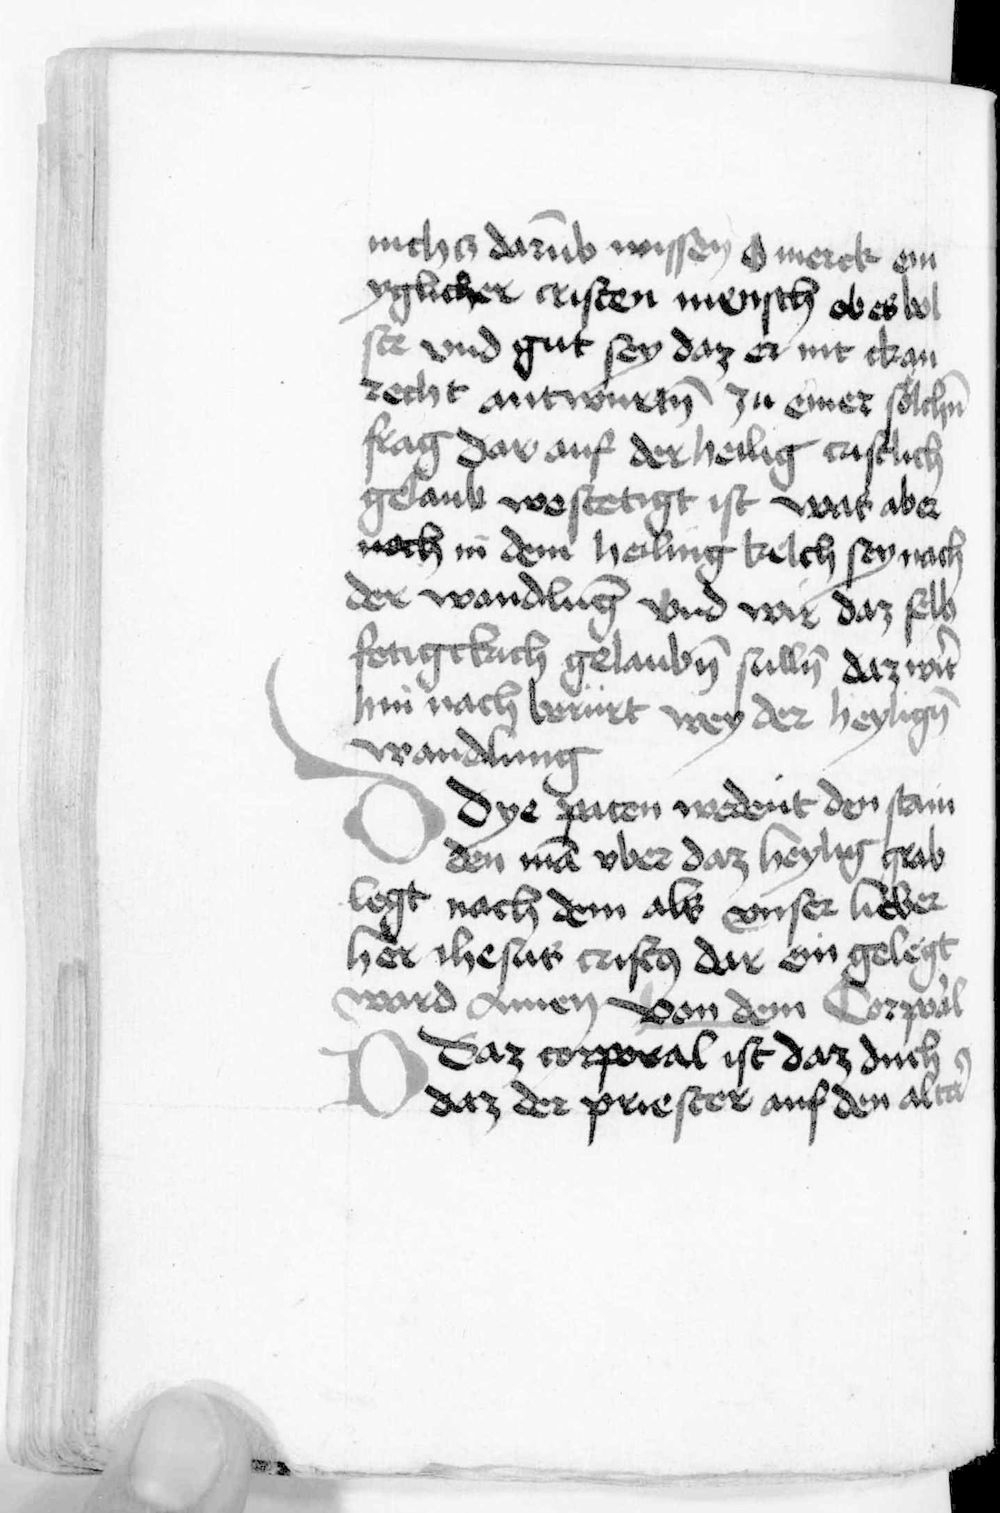 nichcz darūb wissen O merck ein
yglicher cristen mensch ob es wol
ste vnd gut sey daz er nit ckan
recht antwurtn̄ zu einer sölchn̄
frag dar auf der heilig cristlich
gelaub westetigt ist waz aber
noch in dem heiling kelch sey nach
der wandlung vnd wir daz selb
gelaubn̄ sulln̄ daz wirt
hin nach berürt wey der heylign̄
wandlung
Dye paten wedeüt den stain
den mā vber daz heylig grab
legt nach dem als vnser lieber
her ihesus cristus dar ein gelegt
ward Amen Von dem Corporal
Daz corporal ist daz duch
daz der priester auf den altar